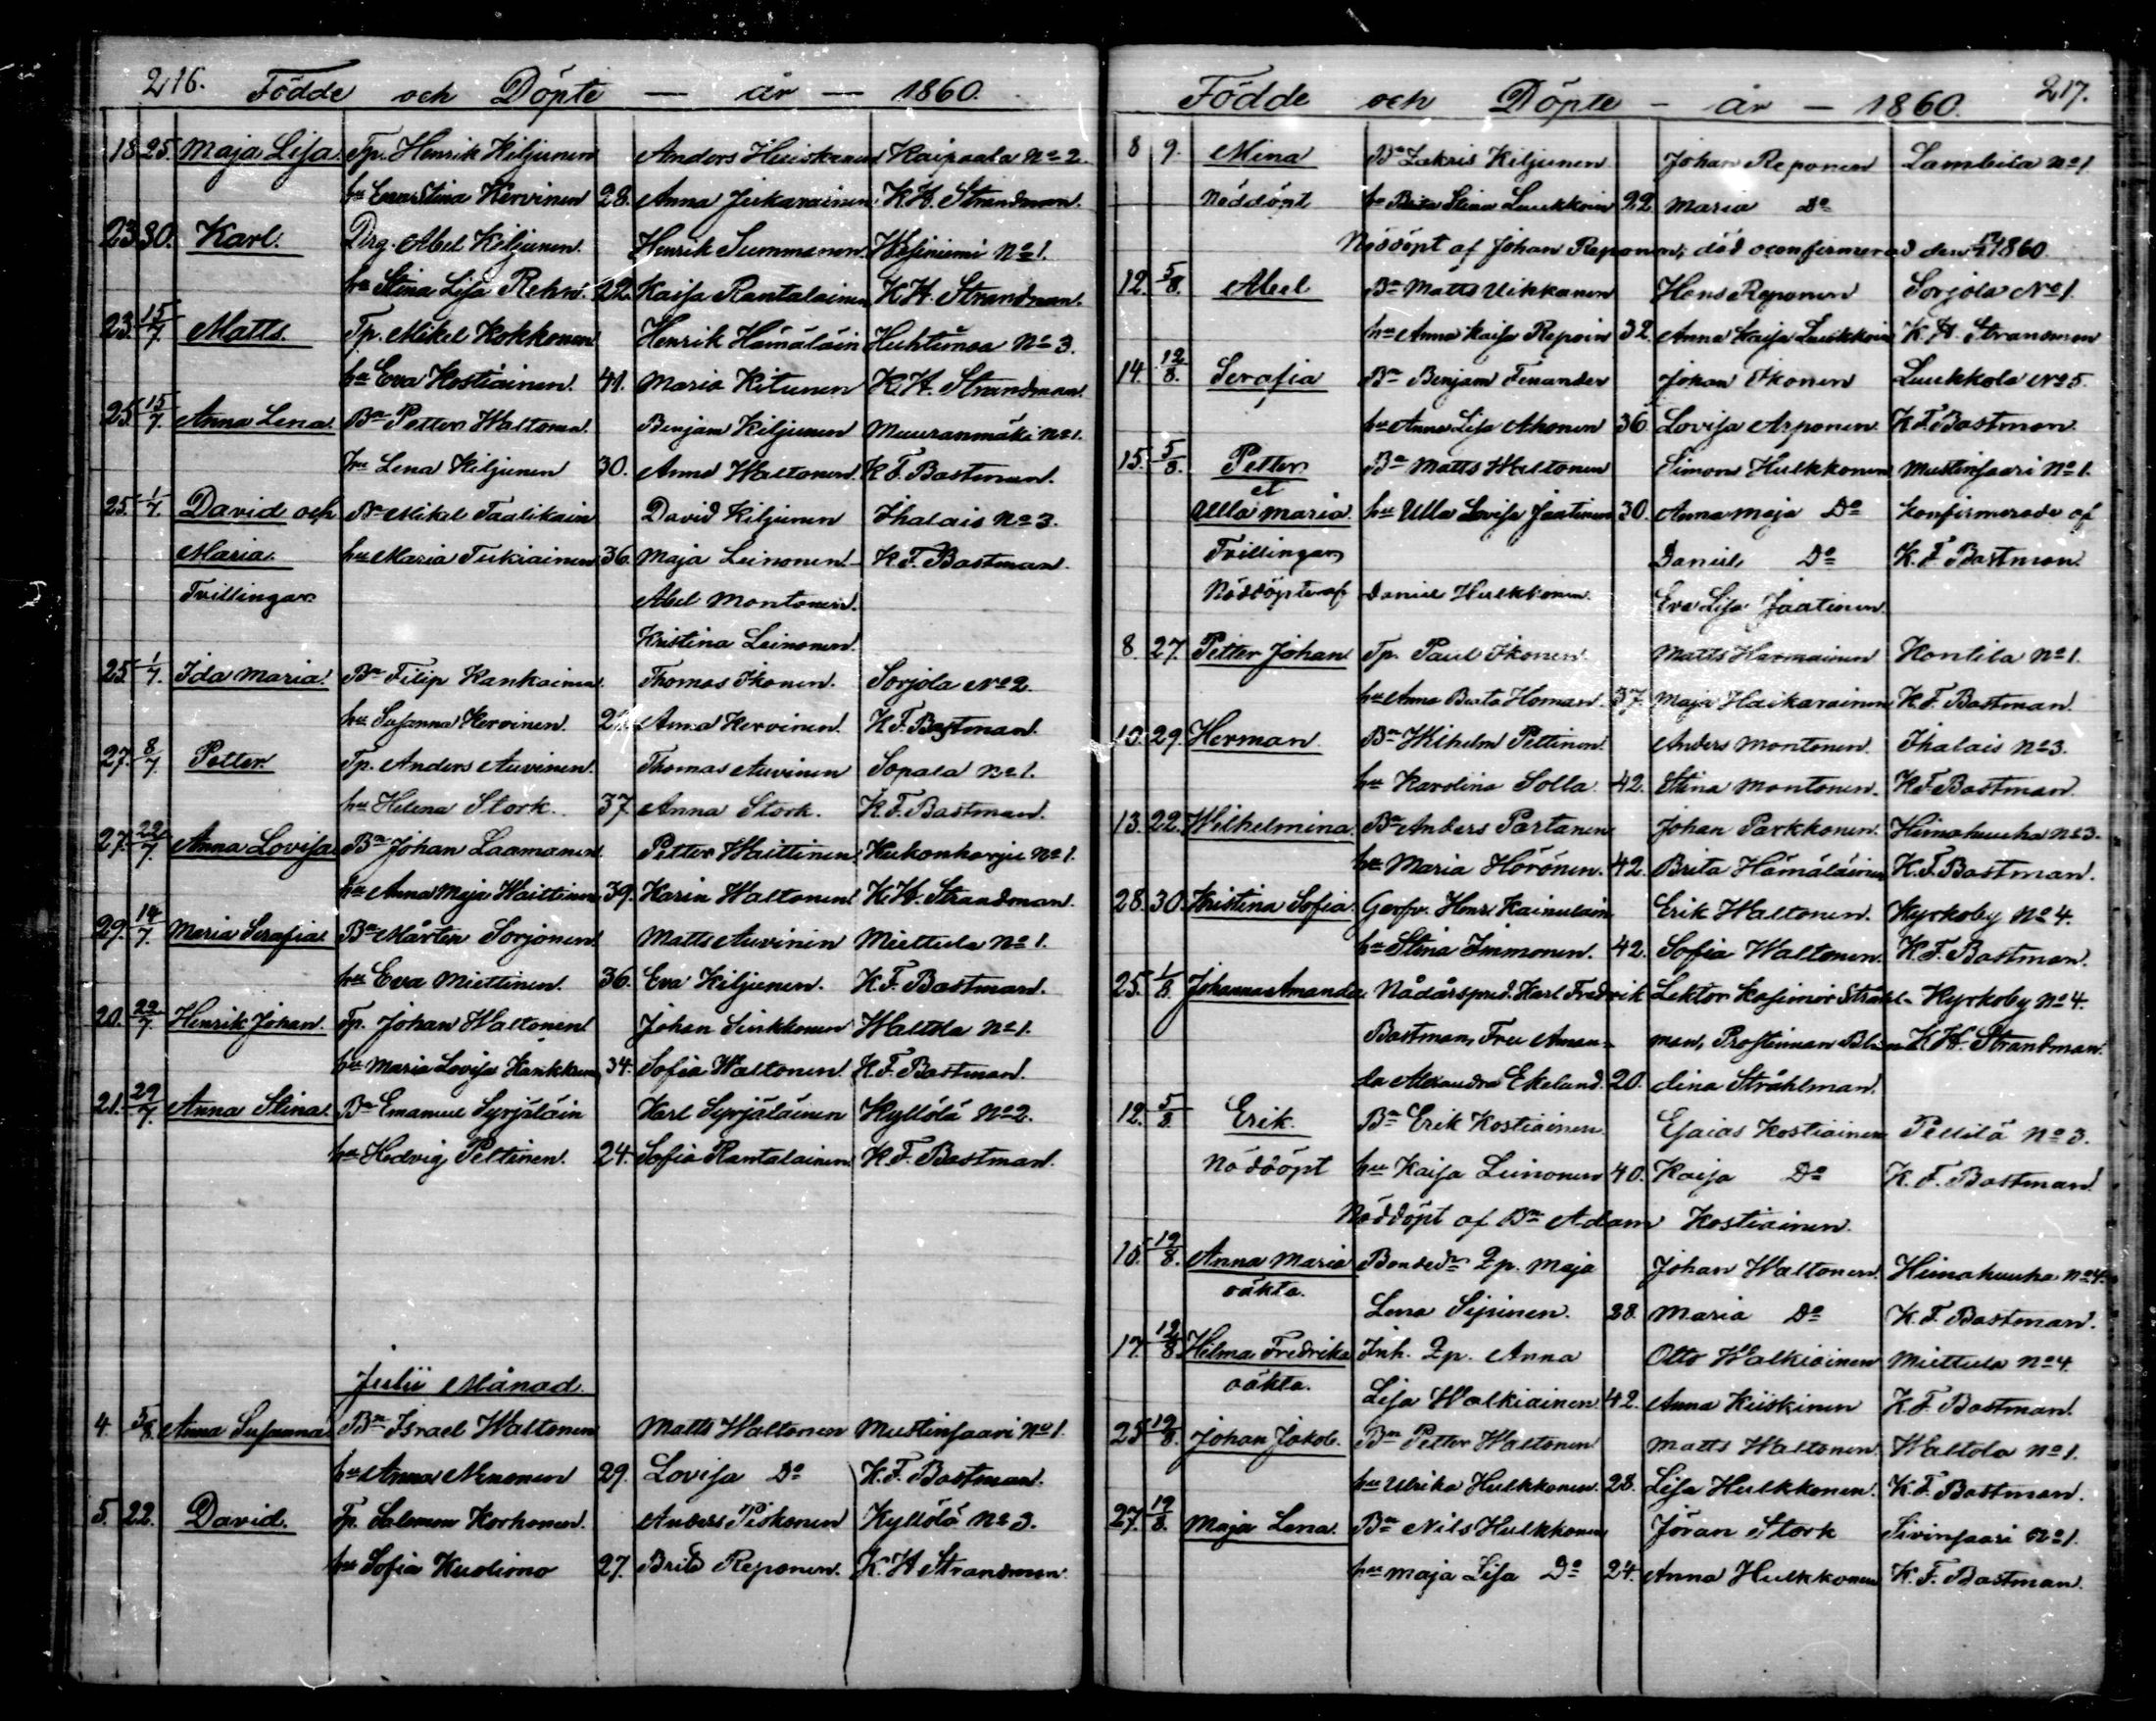 216. Födde och Döpte — år — 1860.
18. 25. Maja Lisa. Tp. Henrik Kiljunen Anders Huiskanen Kaipaala No 2.
hu Eva Stina Kervinen 28. Anna Jurkarainen. K. H. Strandman.
23. 30. Karl. Drg. Abel Kiljunen. Henrik Summanen. No 1.
hu Stina Lisa Rehn. 22. Kaisa Rantalainen K. H. Strandman.
23. 15/7. Matts. Tp. Mikel Kokkonen Henrik Hämäläin Huhtimaa No 3.
hu Eva Kostiainen. 41. Maria Kitunen K. H. Strandman.
25. 15/7. Anna Lena. Bn Petter Waltonen. Benjam Kiljunen Muuranmäki No 1.
hu Lena Kiljunen 30. Anna Waltonen. K. F. Bastman.
25. 1/7. David och Bn Mikel Taalikain David Kiljunen Ihalais No 3.
Maria. hu Maria Tukiainen 36. Maja Leinonen. K. F. Bastman.
Tvillingar. Abel Montonen.
Kristina Leinonen.
25. 1/7. Ida Maria. Bn Filip Kankainen. Thomas Ikonen. Sorjola No 2.
hu Susanna Kervinen. Anna Kervinen. K. F. Bastman.
27. 8/7. Petter. Tp. Anders Auvinen. Thomas Auvinen Sopala No 1.
hu Helena Stork. 37. Anna Stork. K. F. Bastman.
27. 22/7. Anna Lovisa Bn Johan Laamanen. Petter Waittinen Kukonharju No 1.
hu Anna Maja Waittinen 39. Karin Waltonen K. H. Strandman.
29. 14/7. Maria Serafia Bn Mårten Sorjonen. Matts Auvinen Miettula No 1.
hu Eva Miettinen. 36. Eva Kiljunen. K. F. Bastman.
20. 22/7. Henrik Johan. Tp. Johan Waltonen Johan Sinkkonen Waltola No 1.
hu Maria Lovisa Hankkunen 34. Sofia Waltonen. K. F. Bastman.
21. 29/7. Anna Stina. Bn Emanuel Syrjäläin Karl Syrjäläinen Kyllölä No 2.
hu Hedvig Peltinen. 24. Sofia Rantalainen K. F. Bastman.
Julii Månad.
4. 5/8. Anna Susanna Bn Israel Waltonen Matts Waltonen Mustinsaari No 1.
hu Anna Nenonen 29. Lovisa Do K. F. Bastman.
5. 22. David. Tp. Salomon Korhonen. Anders Piskonen Kyllölä No 3.
hu Sofia Kuolimo 27. Brita Reponen. K. H. Strandman.
Födde och Döpte — år — 1860. 217.
8 9. Mina Bn Zakris Kiljunen Johan Reponen Lambila No 1
Nöddöpt hu Brita Stina Luukkoin 22 Maria Do
Nöddöpt af Johan Reponen, död oconfirmerad den 1860.
12. 5/8. Abel Bn Matts Uikkanen Hans Reponen Sorjola No 1.
hu Anna Kaisa Repoin 32. Anna Kaisa Luukkoin K. H. Strandman
14. 12/8. Serafia Bn Benjam Fenander Johan Ikonen Luukkola No 5.
hu Anna Lisa Ahonen 36. Lovisa Arponen. K. F. Bastman.
15. 5/8. Petter Bn Matts Waltonen Simon Hulkkonen Mustinsaari No 1.
et
Ulla Maria. hu Ulla Lovisa Jaatinen 30. Anna Maja Do konfirmerade af
Tvillingar Daniel Do K. F. Bastman.
Nöddöpte af Daniel Hulkkonen. Eva Lisa Jaatinen
8. 27. Petter Johan Tp. Paul Ikonen. Matts Harmainen Kontila No 1.
hu Anna Beata Homan. 37. Maja Haikarainen K. F. Bastman.
10. 29. Herman. Bn Wilhelm Peltinen. Anders Montonen. Ihalais No 3.
hu Karolina Solla 42. Stina Montonen. K. F. Bastman.
13. 22. Wilhelmina. Bn Anders Partanen Johan Parkkonen. Himahuuha No 3.
hu Maria Hörönen. 42. Brita Hämäläinen K. F. Bastman.
28. 30. Kristina Sofia. Henr. Kainulain Erik Waltonen. Kyrkoby No 4.
hu Stina Immonen. 42. Sofia Waltonen. K. F. Bastman.
25. 1/8. Johanna Amanda Nådårspred. Karl Fredrik Lektor Kasimir Stråhl- Kyrkoby No 4.
Bastman, Fru Aman- man, Prostinnan K. H. Strandman.
da Alexandra Ekelund. 20. dina Stråhlman.
12. 5/8. Erik. Bn Erik Kostiainen. Esaias Kostiainen Pellilä No 3.
Nöddöpt hu Kaisa Leinonen 40. Kaisa Do K. F. Bastman.
Nöddöpt af Bn Adam Kostiainen.
10. 19/8. Anna Maria Bonded. Qp. Maja Johan Waltonen. Himahuuha No 4.
oäkta. Lena Sipinen. 28. Maria Do K. F. Bastman.
17. 12/8. Hilma Fredrika Inh. Qp. Anna Otto Walkiainen Miettula No 4.
oäkta. Lisa Walkiainen 42. Anna Kiiskinen K. F. Bastman.
25. 19/8. Johan Jakob. Bn Petter Waltonen Matts Waltonen. Waltola No 1.
hu Ulrika Hulkkonen. 28. Lisa Hulkkonen. K. F. Bastman.
27. 19/8. Maja Lena. Bn Nils Hulkkonen Jöran Stork Sivinsaari No 1.
hu Maja Lisa Do 24. Anna Hulkkonen K. F. Bastman.